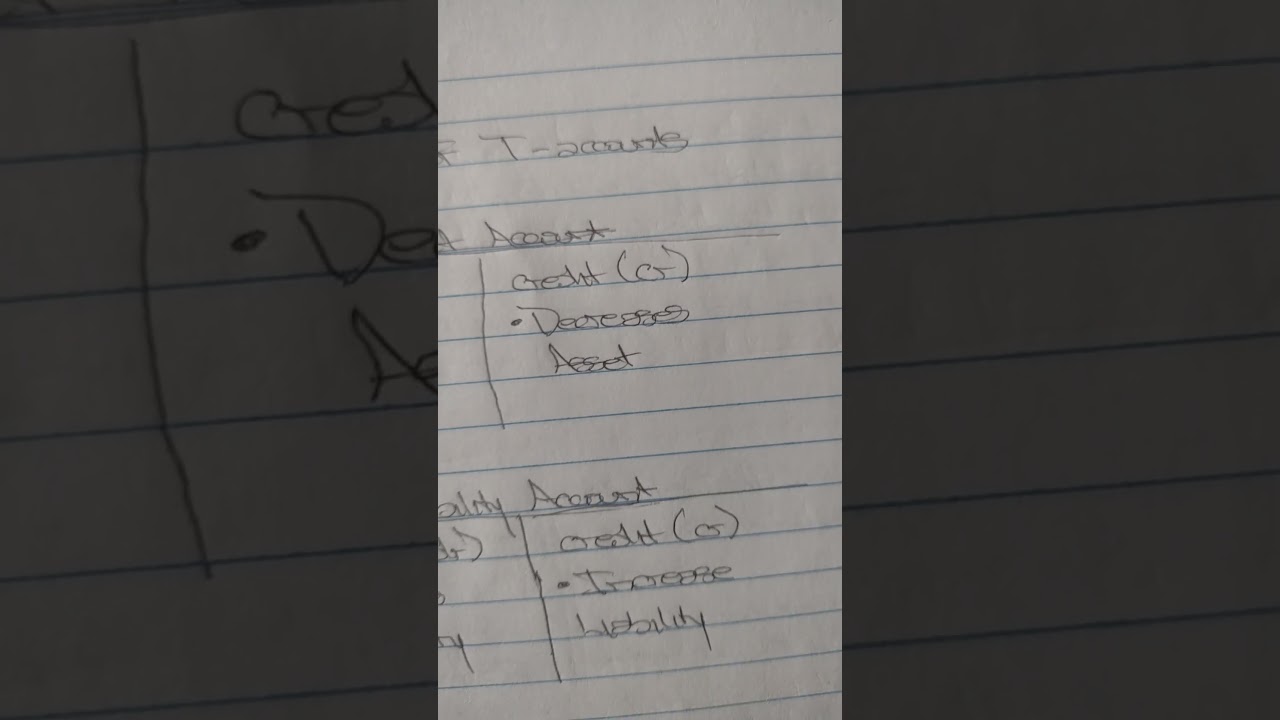 T-accounts
Account
credit (cr)
• Decreases
Asset
bility Account
dr)
credit (cr)
• Increase
Liability
ty